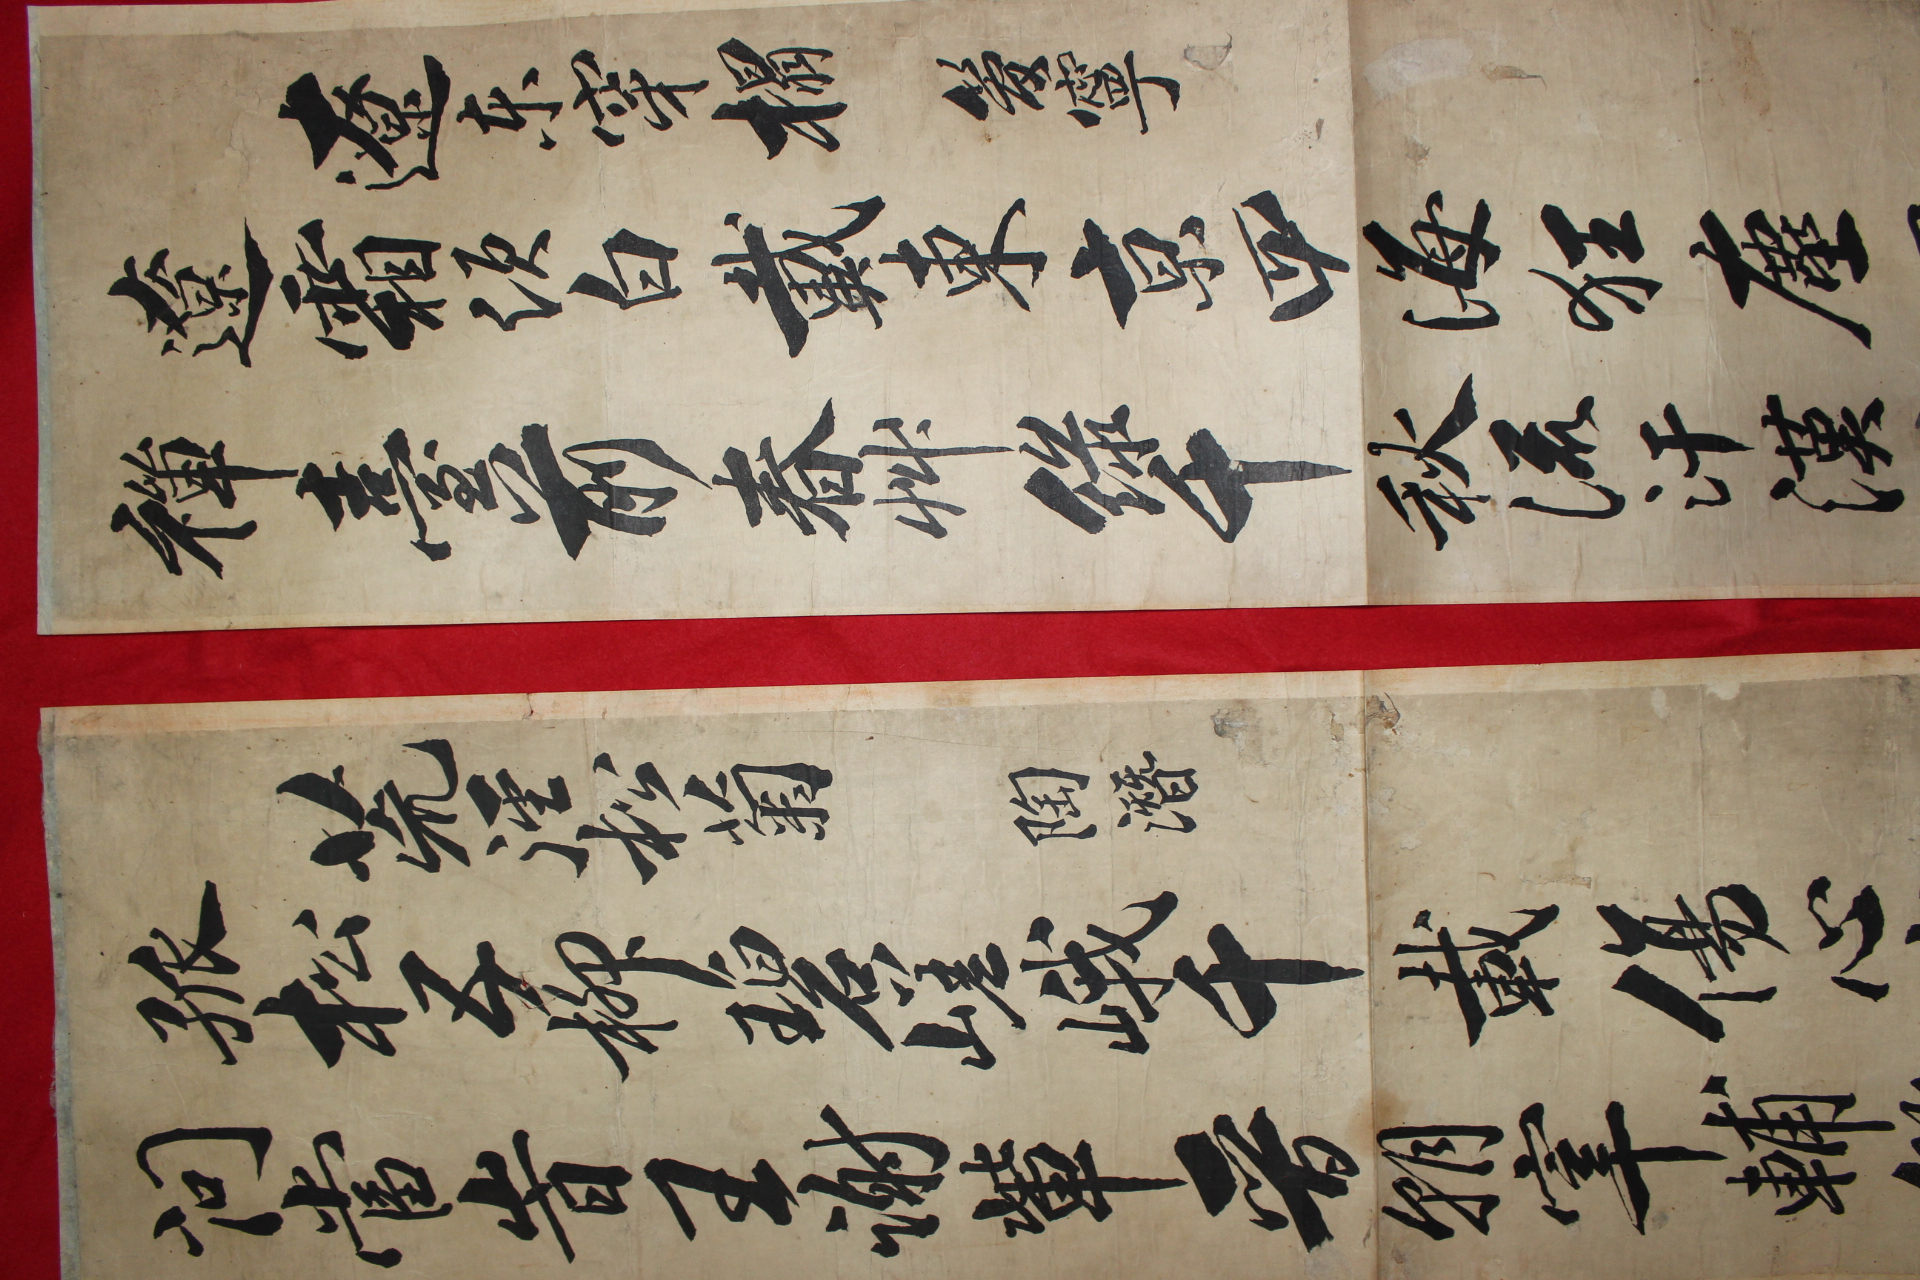 遼东穿榻 管寧
遼霜须白戴東京四海狂塵
禪臺前春艸綠千秋流汗漢
荒逕松菊 陶潛
孤松五柳碧嵯峨千載傷心
问當时王谢輩晉朝宰輔